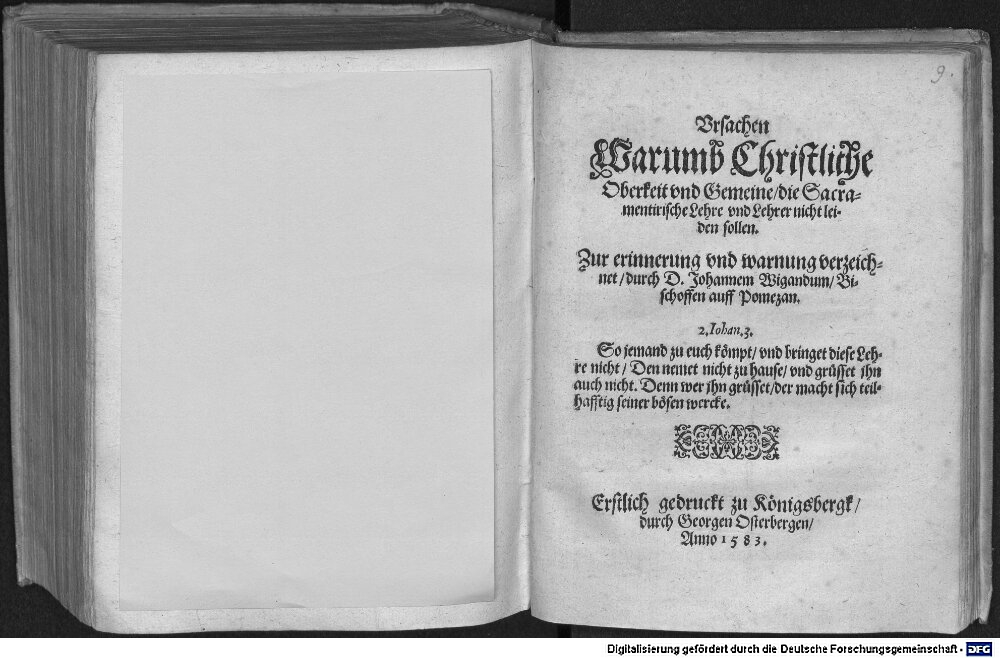 9.
Vrsachen
Warumb Christliche
Oberkeit vnd Gemeine/die Sacra-
mentirische Lehre vnd Lehrer nicht lei-
den sollen.
Zur erinnerung vnd warnung verzeich-
net/durch D. Johannem Wigandum/Bi-
schoffen auff Pomezan.
2.Iohan.3.
So jemand zu euch kömpt/ vnd bringet diese Leh-
re nicht/ Den nemet nicht zu hause/ vnd grüsset ihn
auch nicht. Denn wer ihn grüsset/der macht sich teil-
hafftig seiner bösen wercke.
Erstlich gedruckt zu Königsbergk/
durch Georgen Osterbergen/
Anno 1583.
Digitalisierung gefördert durch die Deutsche Forschungsgemeinschaft - DFG